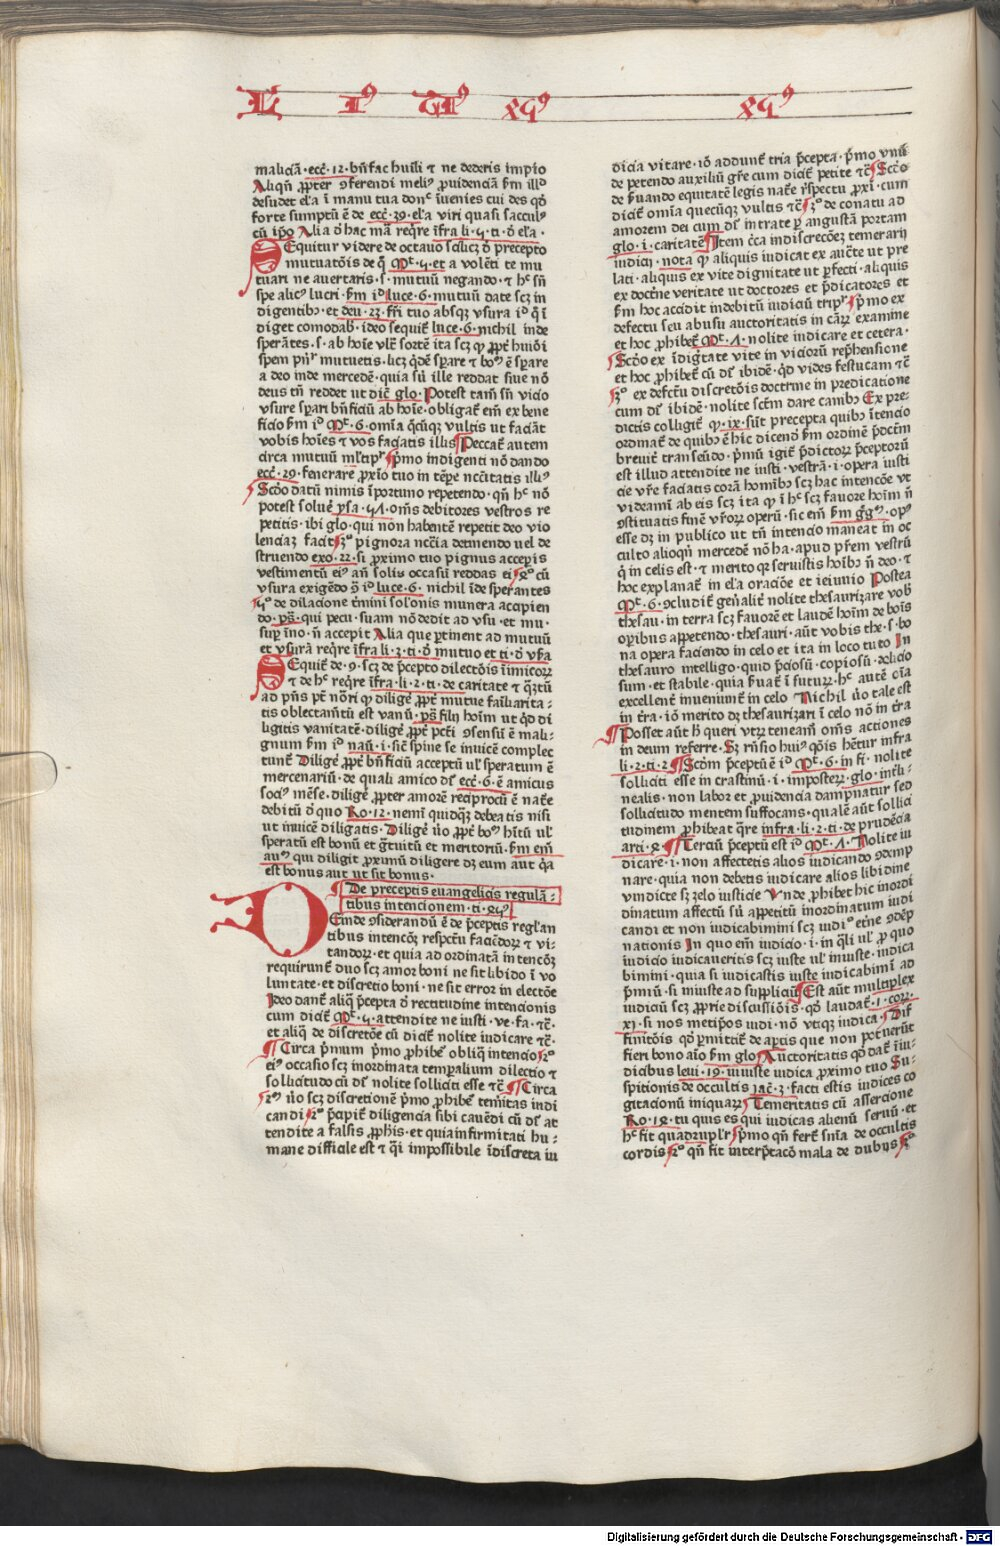 L Iꝰ Tİ Iꝰ xvꝰ xvꝰ
maliciā · ecc̄ · 12 · bn̄fac humili ⁊ ne dederis impio
Aliqn̄ ꝓpter ꝯferendi meliꝰ ꝓuidenciā
desudet el̓a ī manu tua donᶜ īuenies cui des
forte sumptū ē de ecc̄ · 29 · el̓a viri quasi sacculꝰ
cū ip̄o Alia de hac mā req̄re īfra li · 5 · ti · de el̓a ·
SEquitur videre de octauo scilicꝫ de precepto
mutuatōis de q̄ Mt̄ · 5 · et a volēti te mu
tuari ne auertaris · s · mutuū negando · ⁊ hᶜ sn̄
spe alicꝰ lucri · luce · 6 · mutuū date scꝫ in
digentibꝰ · et deu · 23 · fr̄i tuo absqꝫ vsura
diget comodab̄ · ideo sequit̄ luce · 6 · nichil inde
sperātes · s · ab hoīe vl̓r sortē ita scꝫ ꝙ ꝓpt̄ humōi
spem mutuetis · licꝫ sperare ⁊ bonū ē sperare
a deo inde mercedē · quia si ille reddat siue nō
deus tn̄ reddet ut dic̄ glo · Potest tam̄ sn̄ vicio
vsure sperari bn̄ficiū ab hoīe · obligat̄ em̄ ex bene
ficio Mt̄ · 6 · omīa q̄cūqꝫ vultis ut faciāt
vobis hoīes ⁊ vos faciatis illis Peccat̄ autem
circa mutuū ml̓tipl̓r p̄mo indigenti nō dando
ecc̄ · 29 · fenerare proxīo tuo in tēpe neccitatis illiꝰ
Scd̄o datū nimis īportuno repetendo · qn̄ hᶜ nō
potest soluē ysa · 58 · oms̄ debitores vestros re
petitis · ibi glo · qui non habentē repetit deo vio
lenciaꝫ facit 3º pignora neccīa detinendo uel de
struendo exo · 22 · si proximo tuo pignus acceperis
vestimentū eiꝰ an̄ solis occasū reddas ei 4º cū
vsura exigēdo luce · 6 · nichil īde sperantes
5º de dilacione t̄mini solōnis munera accipien
do · ps̄ · qui pecū · suam nō dedit ad vsu · et mu ·
sup īno · n̄ accepit Alia que ptinent ad mutuū
et vsurā req̄re īfra li · 3 · ti · de mutuo et ti · de vsura
SEquit̄ de · 9 · scꝫ de p̄cepto dilectōis īimicorꝝ
⁊ de hᶜ req̄re īfra · li · 2 · ti · de caritate ⁊
ad pn̄s pt̄ nōri ꝙ diligit̄ ꝓpt̄ mutue familiarita-
tis oblectam̄tū est vanū · ps̄ filij hoīm ut qd̄ di
ligitis vanitatē · diligit̄ ꝓpt̄ pct̄i ꝯsensū ē mali-
gnum naū · i · sic̄ spine se inuicē complec
tunt̄ Diligit̄ ꝓpt̄ bn̄ficiū acceptū ul̓ speratum ē
mercenariū · de quali amico ds̄ ecc̄ · 6 · ē amicus
sociꝰ mēse · diligit̄ ꝓpter amorē reciprocū ē nat̄e
debitū de quo Ro · 12 · nemī quidqꝫ debeatis nisi
ut inuicē diligatis · Diligit̄ ꝓpt̄ bonū hītū ul̓
speratū est bonū et gratuitū et meritoriū ·
auꝰ qui diligit proximū diligere dꝫ eum aut
est bonus aut ut sit bonus ·
De preceptis euangelicis regulā-
tibus intencionem · ti · xvꝰ
DEinde ꝯsiderandū ē de p̄ceptis regl̓an
tibus intencōꝫ respectū faciēdorꝝ ⁊ vi-
tandorꝝ · et quia ad ordinatā in tencōꝫ
requirunt̄ duo scꝫ amor boni ne sit libido ī vo
luntate · et discretio boni · ne sit error in electōe
Ideo dant̄ aliq̄ p̄cepta de rectitudine intencionis
cum dicit̄ Mt̄ · 5 · attendite ne iusti · ve · fa · ⁊c̄ ·
et aliq̄ de discretōe cū dicit̄ nolite iudicare ⁊c̄ ·
Circa p̄mum p̄mo ꝓhibet̄ obliq̄ intencio 2º
eiꝰ occasio scꝫ inordinata tempalium dilectio ⁊
sollicitudo cū ds̄ nolite solliciti esse ⁊c̄ Circa
2m̄ u̓o scꝫ discretionē p̄mo ꝓhibet̄ tem̄itas iudi
candi 2º p̄cipit̄ diligencia sibi cauēdi cū ds̄ at
tendite a falsis ꝓphis · et quia infirmitati hu-
mane difficile est ⁊ q̄i impossibile īdiscreta iu
dicia vitare · iō addunt̄ tria p̄cepta · p̄mo vnū
de petendo auxiliū gr̄e cum dicit̄ petite ⁊c̄ Scd̄o
de seruando equitatē legis nat̄e respectu ꝓxi · cum
dicit̄ omīa quecūqꝫ vultis ⁊c̄ 3º de conatu ad
amorem dei cum ds̄ intrate p angustā portam
glo · i · caritatē Item c̄ca indiscrecōeꝫ temerarij
iudicij · nota ꝙ aliquis iudicat ex auct̄e ut pre
lati · aliquis ex vite dignitate ut perfecti · aliquis
ex doctn̄e veritate ut doctores et p̄dicatores et
hoc accidit indebitū iudiciū tripl̓r p̄mo ex
defectu seu abusu auctoritatis in cārꝝ examine
et hoc prohibet̄ Mt̄ · 7 · nolite iudicare et cetera ·
Scd̄o ex īdignitate vite in viciorū rephensione
et hoc ꝓhibet̄ cū ds̄ ibidē · qd̄ vides festucam ⁊c̄
3º ex defectu discretōis doctrine in predicatione
cum ds̄ ibidē · nolite sct̄m dare canibꝰ Ex pre-
dictis colligit̄ ꝙ · ix · sūt precepta quibꝰ ītencio
ordinat̄ de quibꝰ ē hic dicendū ordinē p̄dictm̄
breuit̄ transeūdo · p̄mū igit̄ p̄dictorꝝ p̄ceptorū
est illud attendite ne iusti · vestrā · i · opera iusti
cie vr̄e faciatis corā homībꝰ scꝫ hac intencōe vt
videamī ab eis scꝫ ita ꝙ ī hᶜ scꝫ fauore hoīm n̄
ꝯstituatis finē vr̄orꝝ operū · sic em̄ opꝰ
esse dꝫ in publico ut tn̄ intencio maneat in oc
culto alioqn̄ mercedē nō ha · apud pr̄em vestrū
q̄ in celis est · ⁊ merito qꝛ seruistis hoībꝰ n̄ deo · ⁊
hoc explanat̄ in el̓a oracioē et ieiunio Postea
Mt̄ · 6 · ꝯcludit̄ genāliter nolite thesaurizare vobꝭ
thesau · in terra scꝫ fauorē et laudē hoīm de boīs
opibus appetendo · thesauri · aūt vobis the · s · bo
na opera faciendo in celo et ita in loco tuto In
thesauro intelligo · quid preciosū · copiosū · delicio
sum · et stabile · quia seruat̄ ī futurꝝ hᶜ autē oīa
excellent̄ inueniunt̄ in celo Nichil u̓o tale est
in t̄ra · iō merito dꝫ thesaurizari ī celo nō in t̄ra
Posset aūt hᶜ queri vtrꝝ teneam̄ oms̄ actiones
in deum referre · Sꝫ rn̄sio huiꝰ qōis hētur infra
li · 2 · ti · 2 Scd̄m p̄ceptū ē id̄ Mt̄ · 6 · in fi · nolite
solliciti esse in crastinū · i · in posterꝝ · glo · int̄li-
nealis · non labor et ꝓuidencia dampnatur sed
sollicitudo mentem suffocans · qualē aūt sollici
tudinem ꝓhibeat q̄re infra · li · 2 · ti · de prudēcia
arti · 8 Terciū p̄ceptū est id̄ Mt̄ · 7 · Nolite iu
dicare · i · non affectetis alios iudicando ꝯdemp
nare · quia non debetis iudicare alios libidine
vindicte sꝫ zelo iusticie Vnde ꝓhibet hic inordi
dinatum affectū sū appetitū inordinatum iudi
candi et non iudicabimini scꝫ iudiᵒ et̄ne ꝯdēp
nationis In quo em̄ iudicio · i · in q̄li ul̓ p quo
iudicio iudicaueritis scꝫ iuste ul̓ iniuste · iudica
bimini · quia si iudicastis iuste iudicabimī ad
p̄miū · si iniuste ad suppliciū Est aūt multiplex
iudiciū scꝫ ꝓprie discussiōis · qd̄ laudat̄ · 1 · corꝝ ·
xj · si nos metipos iudi · nō vtiqꝫ iudica · Dif
finitōis qd̄ p̄mittit̄ de aptis que non potuerūt
fieri bono aīo glo Auctoritatis qd̄ dat̄ īiu-
dicibus leui · 19 · iuiuste iudica ꝓximo tuo Su-
spitionis de occultis iac̄ · 2 · facti estis iudices co
gitacionū iniquarꝝ Temeritatis cū assercione
Ro · 14 · tu quis es qui iudicas alienū seruū · et
hᶜ fit quadrupl̓r p̄mo qn̄ fert̄ sn̄ia de occultis
cordis 2º qn̄ fit interpretacō mala de dubijs 3º
Digitalisierung gefördert durch die Deutsche Forschungsgemeinschaft - DFG